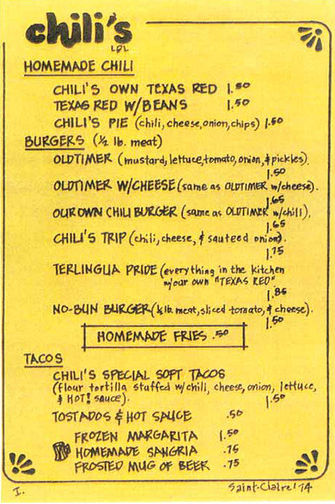 chili's
LBL
HOMEMADE CHILI
CHILI'S OWN TEXAS RED 1.50
TEXAS RED W/BEANS 1.50
CHILI'S PIE (chili, cheese, onion, chips) 1.50
BURGERS (½ lb. meat)
OLDTIMER (mustard, lettuce, tomato, onion, & pickles).
1.50
OLDTIMER W/CHEESE (same as OLDTIMER w/cheese).
1.65
OUR OWN CHILI BURGER (same as OLDTIMER w/chili),
1.65
CHILI'S TRIP (chili, cheese, & sauteed onion).
1.75
TERLINGUA PRIDE (everything in the kitchen
w/our own "TEXAS RED"
1.85
NO-BUN BURGER (½ lb. meat, sliced tomato, & cheese).
1.50
HOMEMADE FRIES .50
TACOS
CHILI'S SPECIAL SOFT TACOS
(flour tortilla stuffed w/chili, cheese, onion, lettuce,
& HOT! sauce). 1.50
TOSTADOS & HOT SAUCE .50
FROZEN MARGARITA 1.50
HOMEMADE SANGRIA .75
FROSTED MUG OF BEER .75
I. Saint-Claire '74